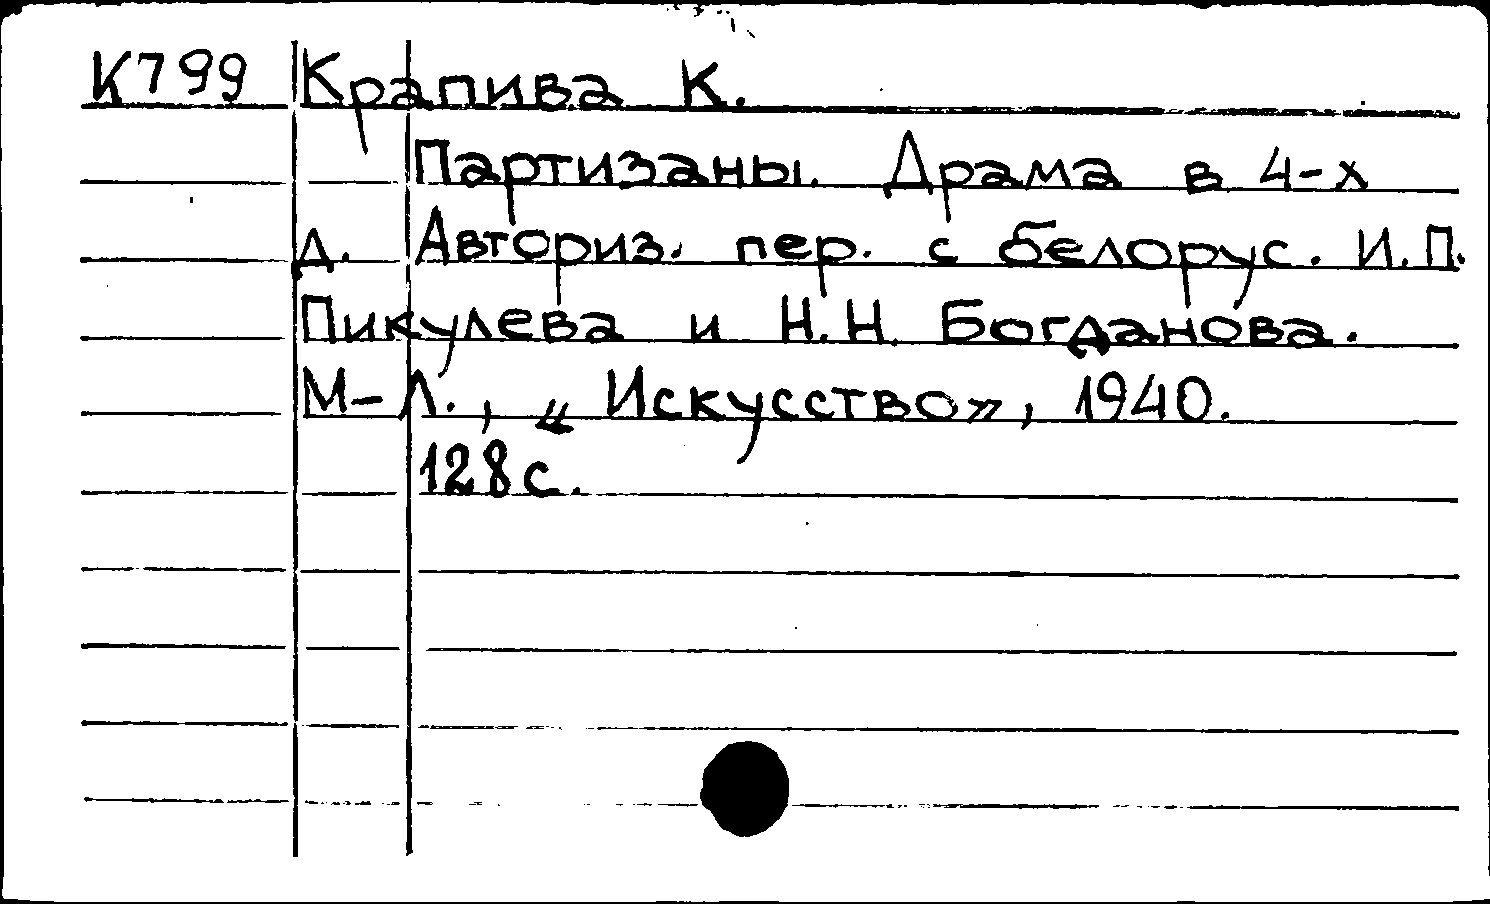 К799 Крапива К.
Партизаны. Драма в 4-х
д. Авториз. пер. с белорус. И.П.
Пикулева и Н.Н. Богданова.
М-Л., „Искусство», 1940.
128с.